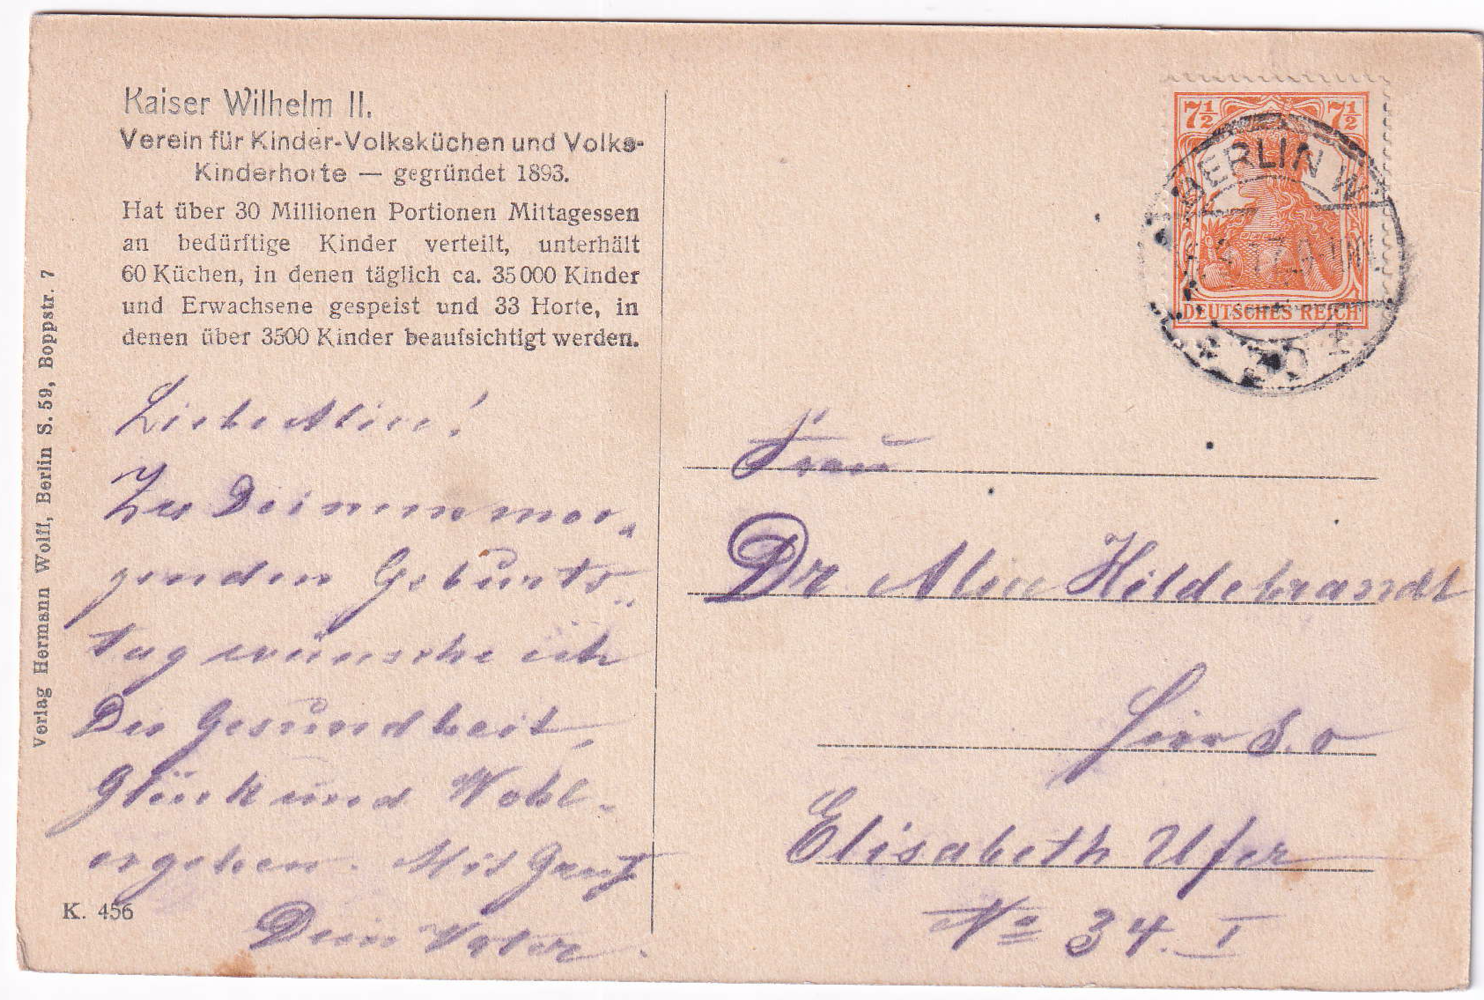 Kaiser Wilhelm II.
Verein für Kinder-Volksküchen und Volks-
Kinderhorte — gegründet 1893.
Hat über 30 Millionen Portionen Mittagessen
an bedürftige Kinder verteilt, unterhält
60 Küchen, in denen täglich ca. 35000 Kinder
und Erwachsene gespeist und 33 Horte, in
denen über 3500 Kinder beaufsichtigt werden.
Liebe Alice!
Zu Deinem mor-
genden Geburts-
tag wünsche ich
Dir Gesundheit,
Glück und Wohl-
ergehen. Mit Gruß
Dein Vater.
K. 456
Verlag Hermann Wolff, Berlin S. 59, Boppstr. 7
7½ 7½
DEUTSCHES REICH
BERLIN W
Frau
Dr Alice Hildebrandt
Hier S.O
Elisabeth Ufer
No 34. I